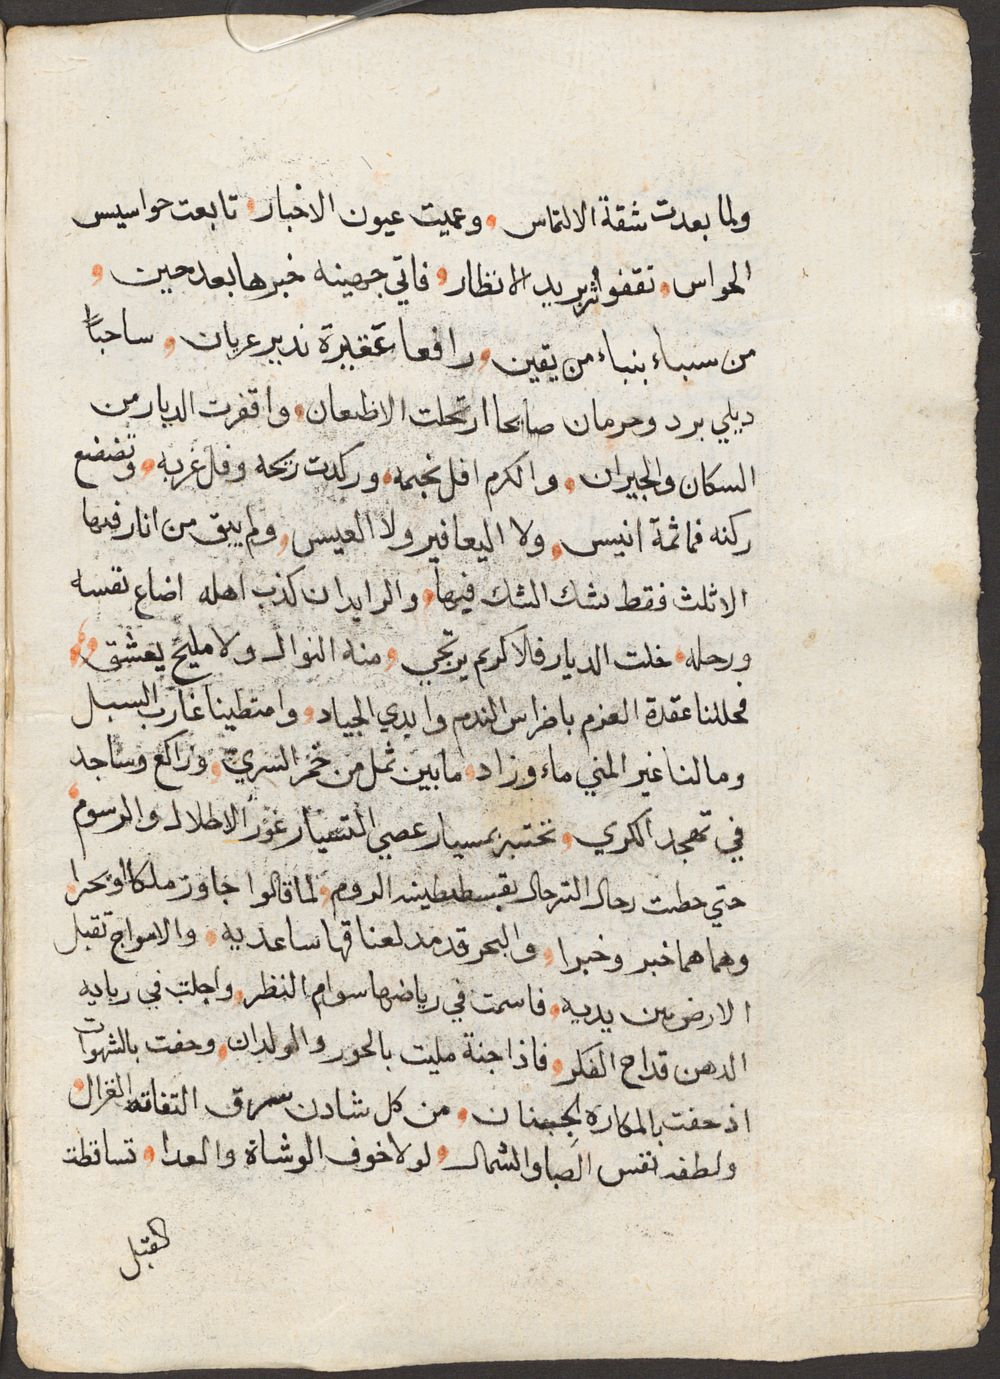 ولما بعدت شقة الالتماس وعميت عيون الاخبار تابعت حواسيس
الحواس تقفوا اثر بريد الانظار فاتي جهينه خبرها بعد حين
من سباء بنباء من يقين رافعا عقيرة نذير عريان ساحباً
ذيلي برد وحرمان صايحا ارتحلت الاظعان واقفرت الديار من
السكان والجيران والكرم افل نجمه وركدت ريحه وفل غربه وتضعضع
ركنه فما ثمة انيس ولا اليعافير ولا العيس ولم يبق من اثارفيها
الا ثلث فقط شك الشك فيها والرايد ان كذب اهله اضاع نفسه
ورحله خلت الديار فلا كريم يرتجي منه النوال ولا مليح يعشق
فحللنا عقدة العزم باضراس الندم وايدي الجياد وامتطينا غارب السبل
ومالنا غير المني ماء وزاد مابين ثمل من خمر السري وراكع وساجد
في تهجد الكري نختبر بمسيار عصي التسيار غور الاطلال والرسوم
حتي حطت رحال الترحال بقسطنطينيه الروم لما قالوا جاور ملكا او بحرا
وهما هما خبر وخبرا والبحر قد مد لعناقها ساعديه والامواج تقبل
الارض بين يديه فاسمت في رياضها سوام النظر واجلت في ربابه
الدهن قداح الفكر فاذا جنة مليت بالحور والولدان وحفت بالشهوات
اذ حفت بالمكاره الجنان من كل شادن سرق التفاته الغزال
ولطفه نفس الصبا والشمال لولا خوف الوشاة والعدا تساقطت